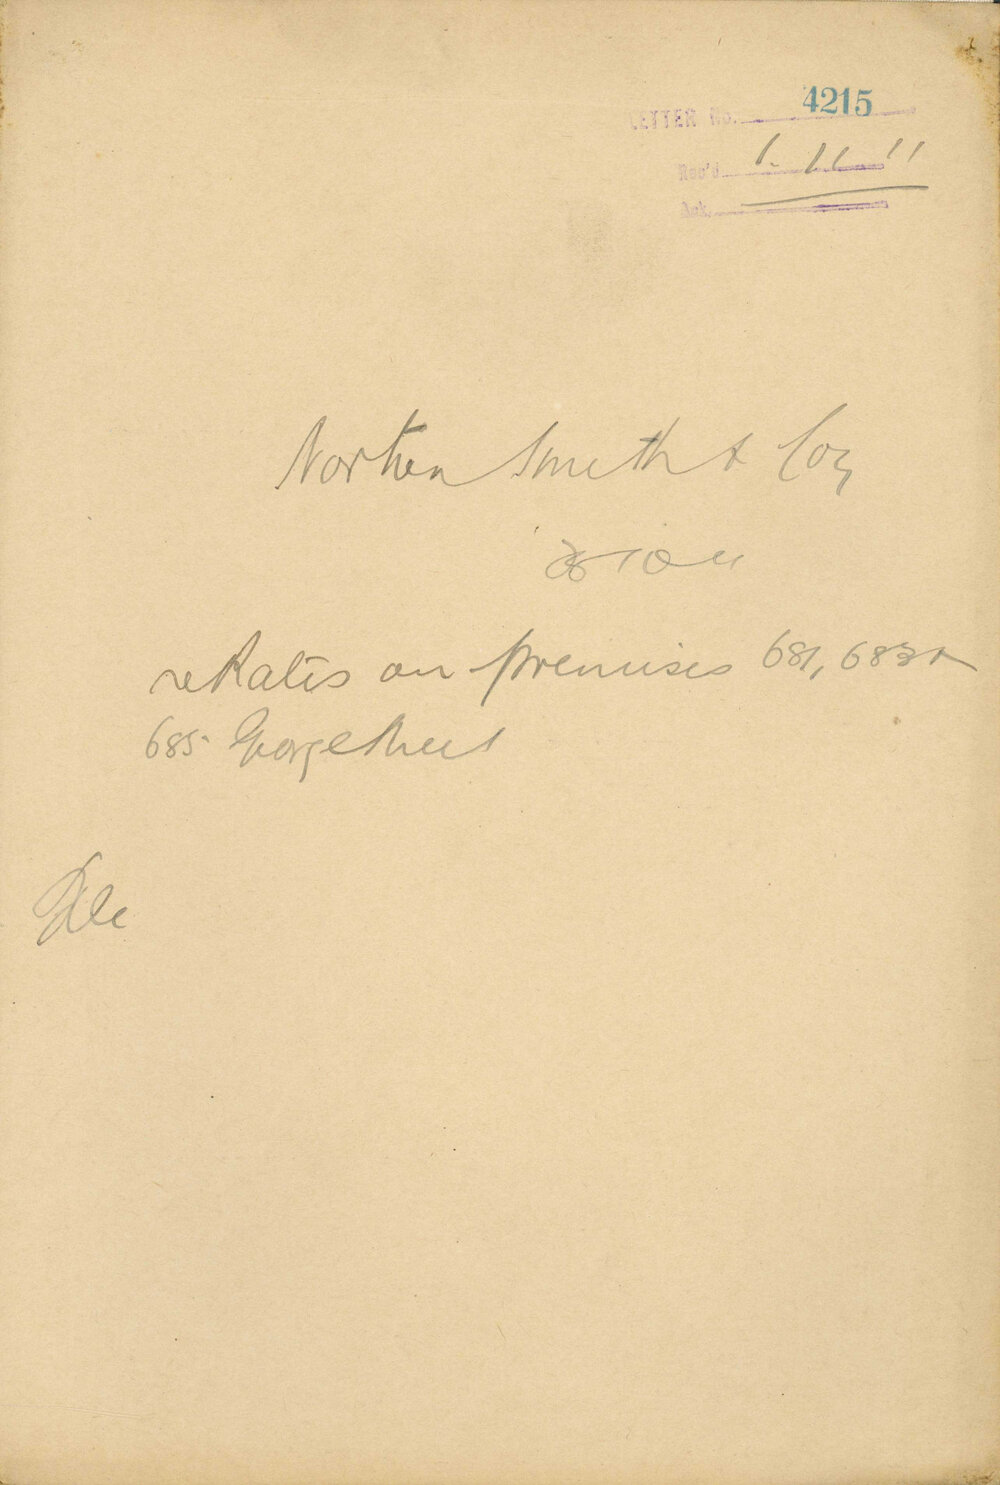 LETTER No. 4215
Rec'd 1. 11 11
Ack.
Norton Smith & Coy
re Rates on premises 681, 683 &
685 George Street
File